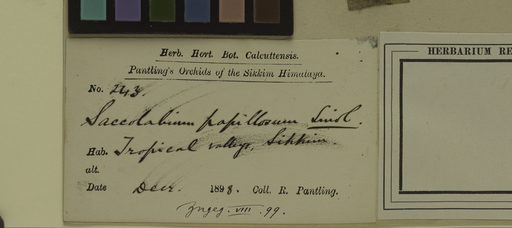 Herb. Hort. Bot. Calcuttensis.
Pantling's Orchids of the Sikkim Himalaya.
No. 243.
Saccolabium papillosum Lindl.
Hab. Tropical valleys, Sikkim.
alt.
Date Decr. 1898. Coll. R. Pantling.
VIII. 99.
HERBARIUM RE